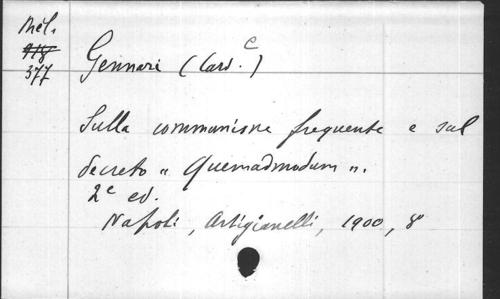 Mél.
918
377
Gennari (Card. C)
Sulla communione frequente e sul
decreto « Quemadmodum ».
2e ed.
Napoli, Artigianelli, 1900, 8°